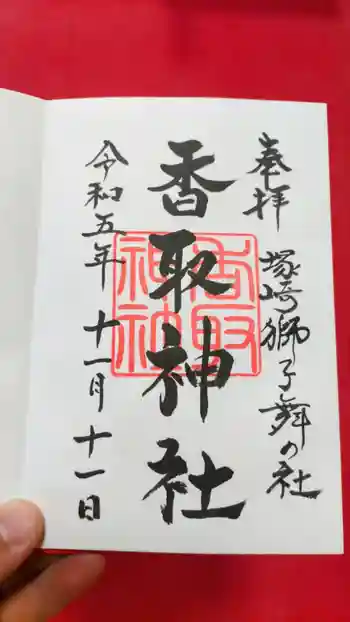 奉拝
塚崎獅子舞の社
香取神社
香取神社
令和五年 十一月十一日